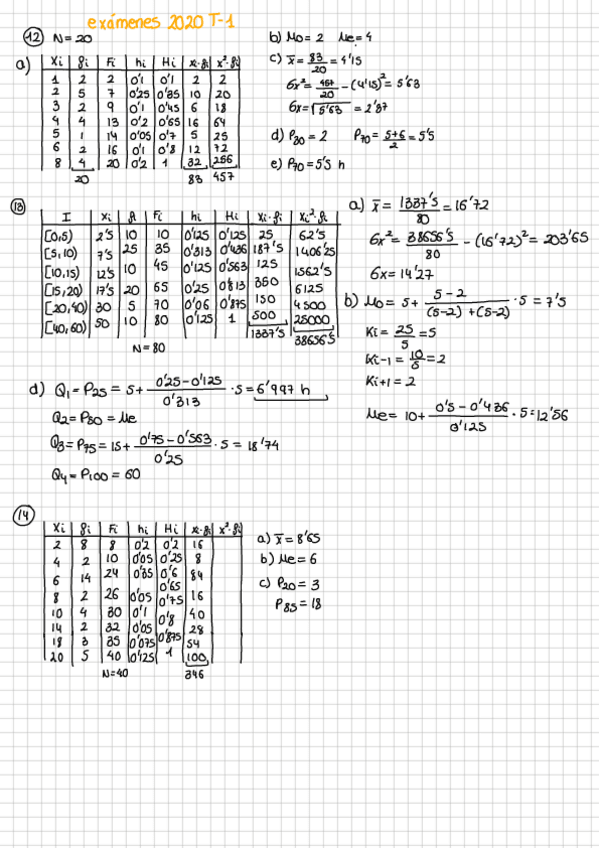 exámenes 2020 T-1
12 N=20
a)
xi fi Fi hi Hi xi·fi x²·fi
1 2 2 0'1 0'1 2 2
2 5 7 0'25 0'35 10 20
3 2 9 0'1 0'45 6 18
4 4 13 0'2 0'65 16 64
5 1 14 0'05 0'7 5 25
6 2 16 0'1 0'8 12 72
8 4 20 0'2 1 32 256
20 83 457
b) Mo=2 Me=4
c) x̄ = 83/20 = 4'15
σx² = 457/20 - (4'15)² = 5'63
σx = √5'63 = 2'37
d) P30 = 2 P70 = 5+6/2 = 5'5
e) P70 = 5'5 h
13
I xi fi Fi hi Hi xi·fi xi²·fi
[0,5) 2'5 10 10 0'125 0'125 25 62'5
[5,10) 7'5 25 35 0'313 0'436 187'5 1406'25
[10,15) 12'5 10 45 0'125 0'563 125 1562'5
[15,20) 17'5 20 65 0'25 0'813 350 6125
[20,40) 30 5 70 0'06 0'875 150 4500
[40,60) 50 10 80 0'125 1 500 25000
N=80 1337'5 38656'5
a) x̄ = 1337'5/80 = 16'72
σx² = 38656'5/80 - (16'72)² = 203'65
σx = 14'27
b) Mo = 5 + 5-2/(5-2)+(5-2) · 5 = 7'5
Ki = 25/5 = 5
Ki-1 = 10/5 = 2
Ki+1 = 2
Me = 10 + 0'5-0'436/0'125 · 5 = 12'56
d) Q1 = P25 = 5 + 0'25-0'125/0'313 · 5 = 6'997 h
Q2 = P50 = Me
Q3 = P75 = 15 + 0'75-0'563/0'25 · 5 = 18'74
Q4 = P100 = 60
14
xi fi Fi hi Hi xi·fi x²·fi
2 8 8 0'2 0'2 16
4 2 10 0'05 0'25 8
6 14 24 0'35 0'6 84
8 2 26 0'05 0'65 16
10 4 30 0'1 0'75 40
14 2 32 0'05 0'8 28
18 3 35 0'075 0'875 54
20 5 40 0'125 1 100
N=40 346
a) x̄ = 8'65
b) Me = 6
c) P20 = 3
P85 = 18